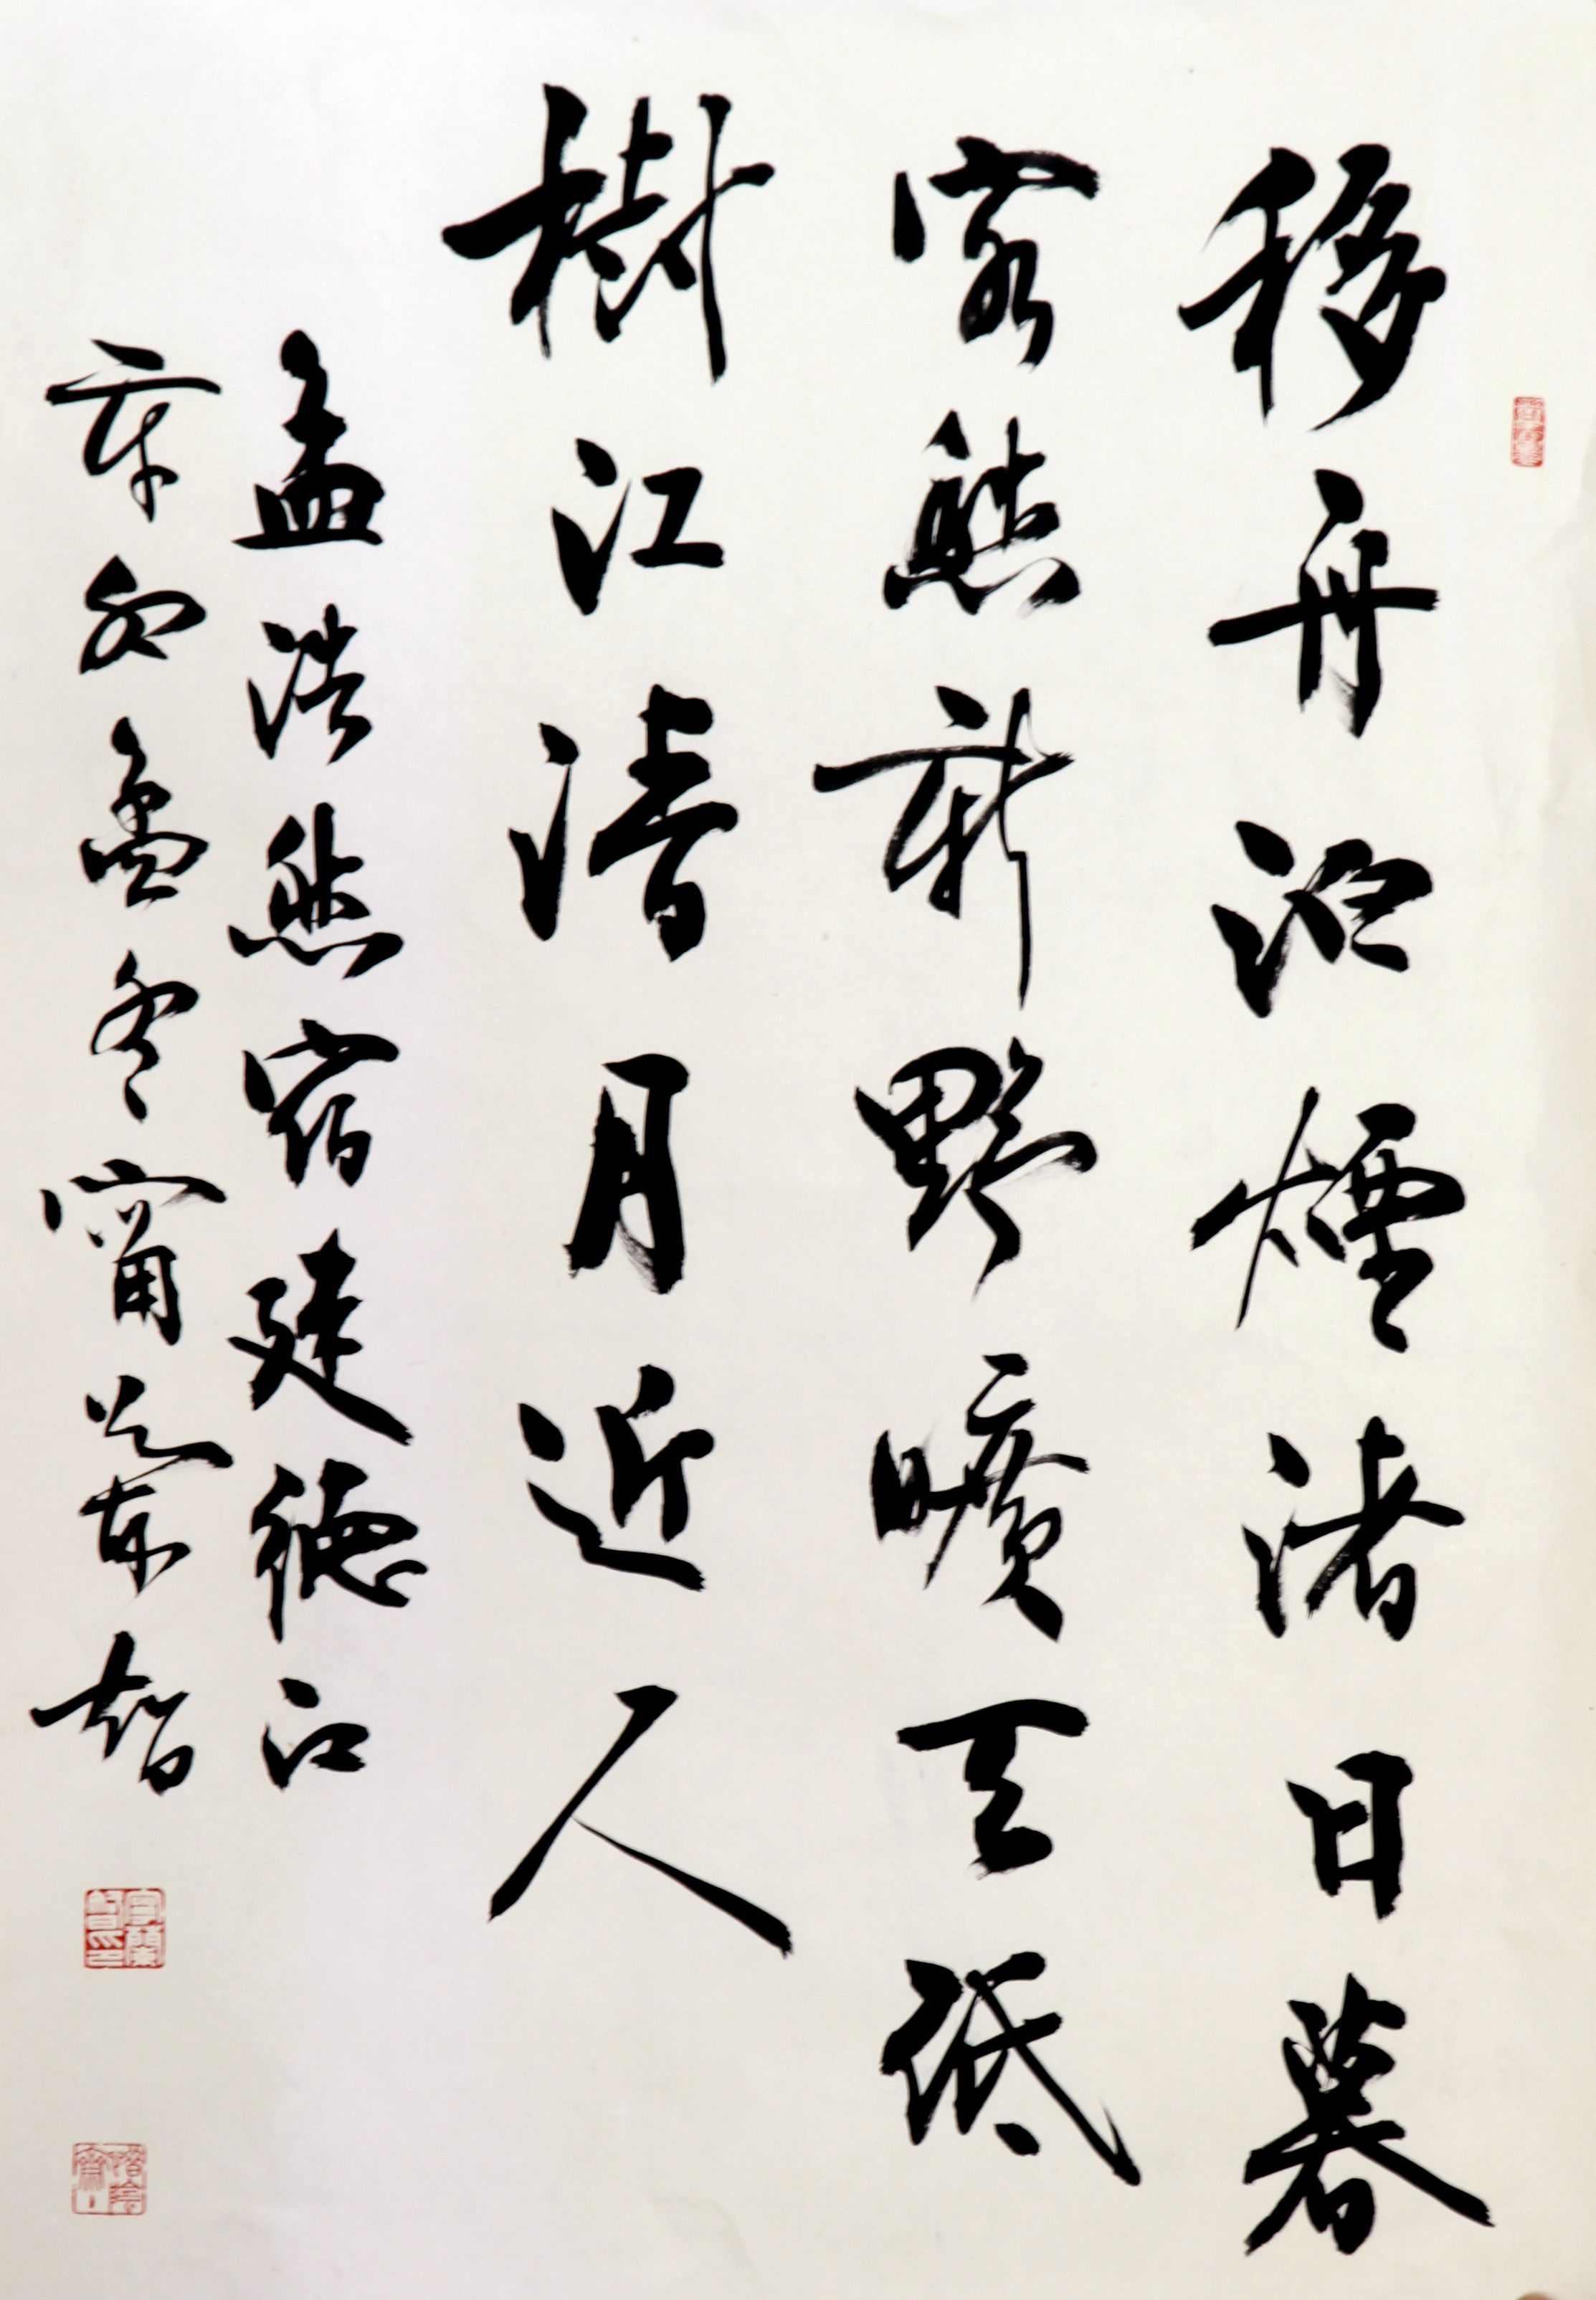 移舟泊煙渚日暮
客愁新野曠天低
樹江清月近人
孟浩然宿建德江
辛卯孟冬甯蘭智